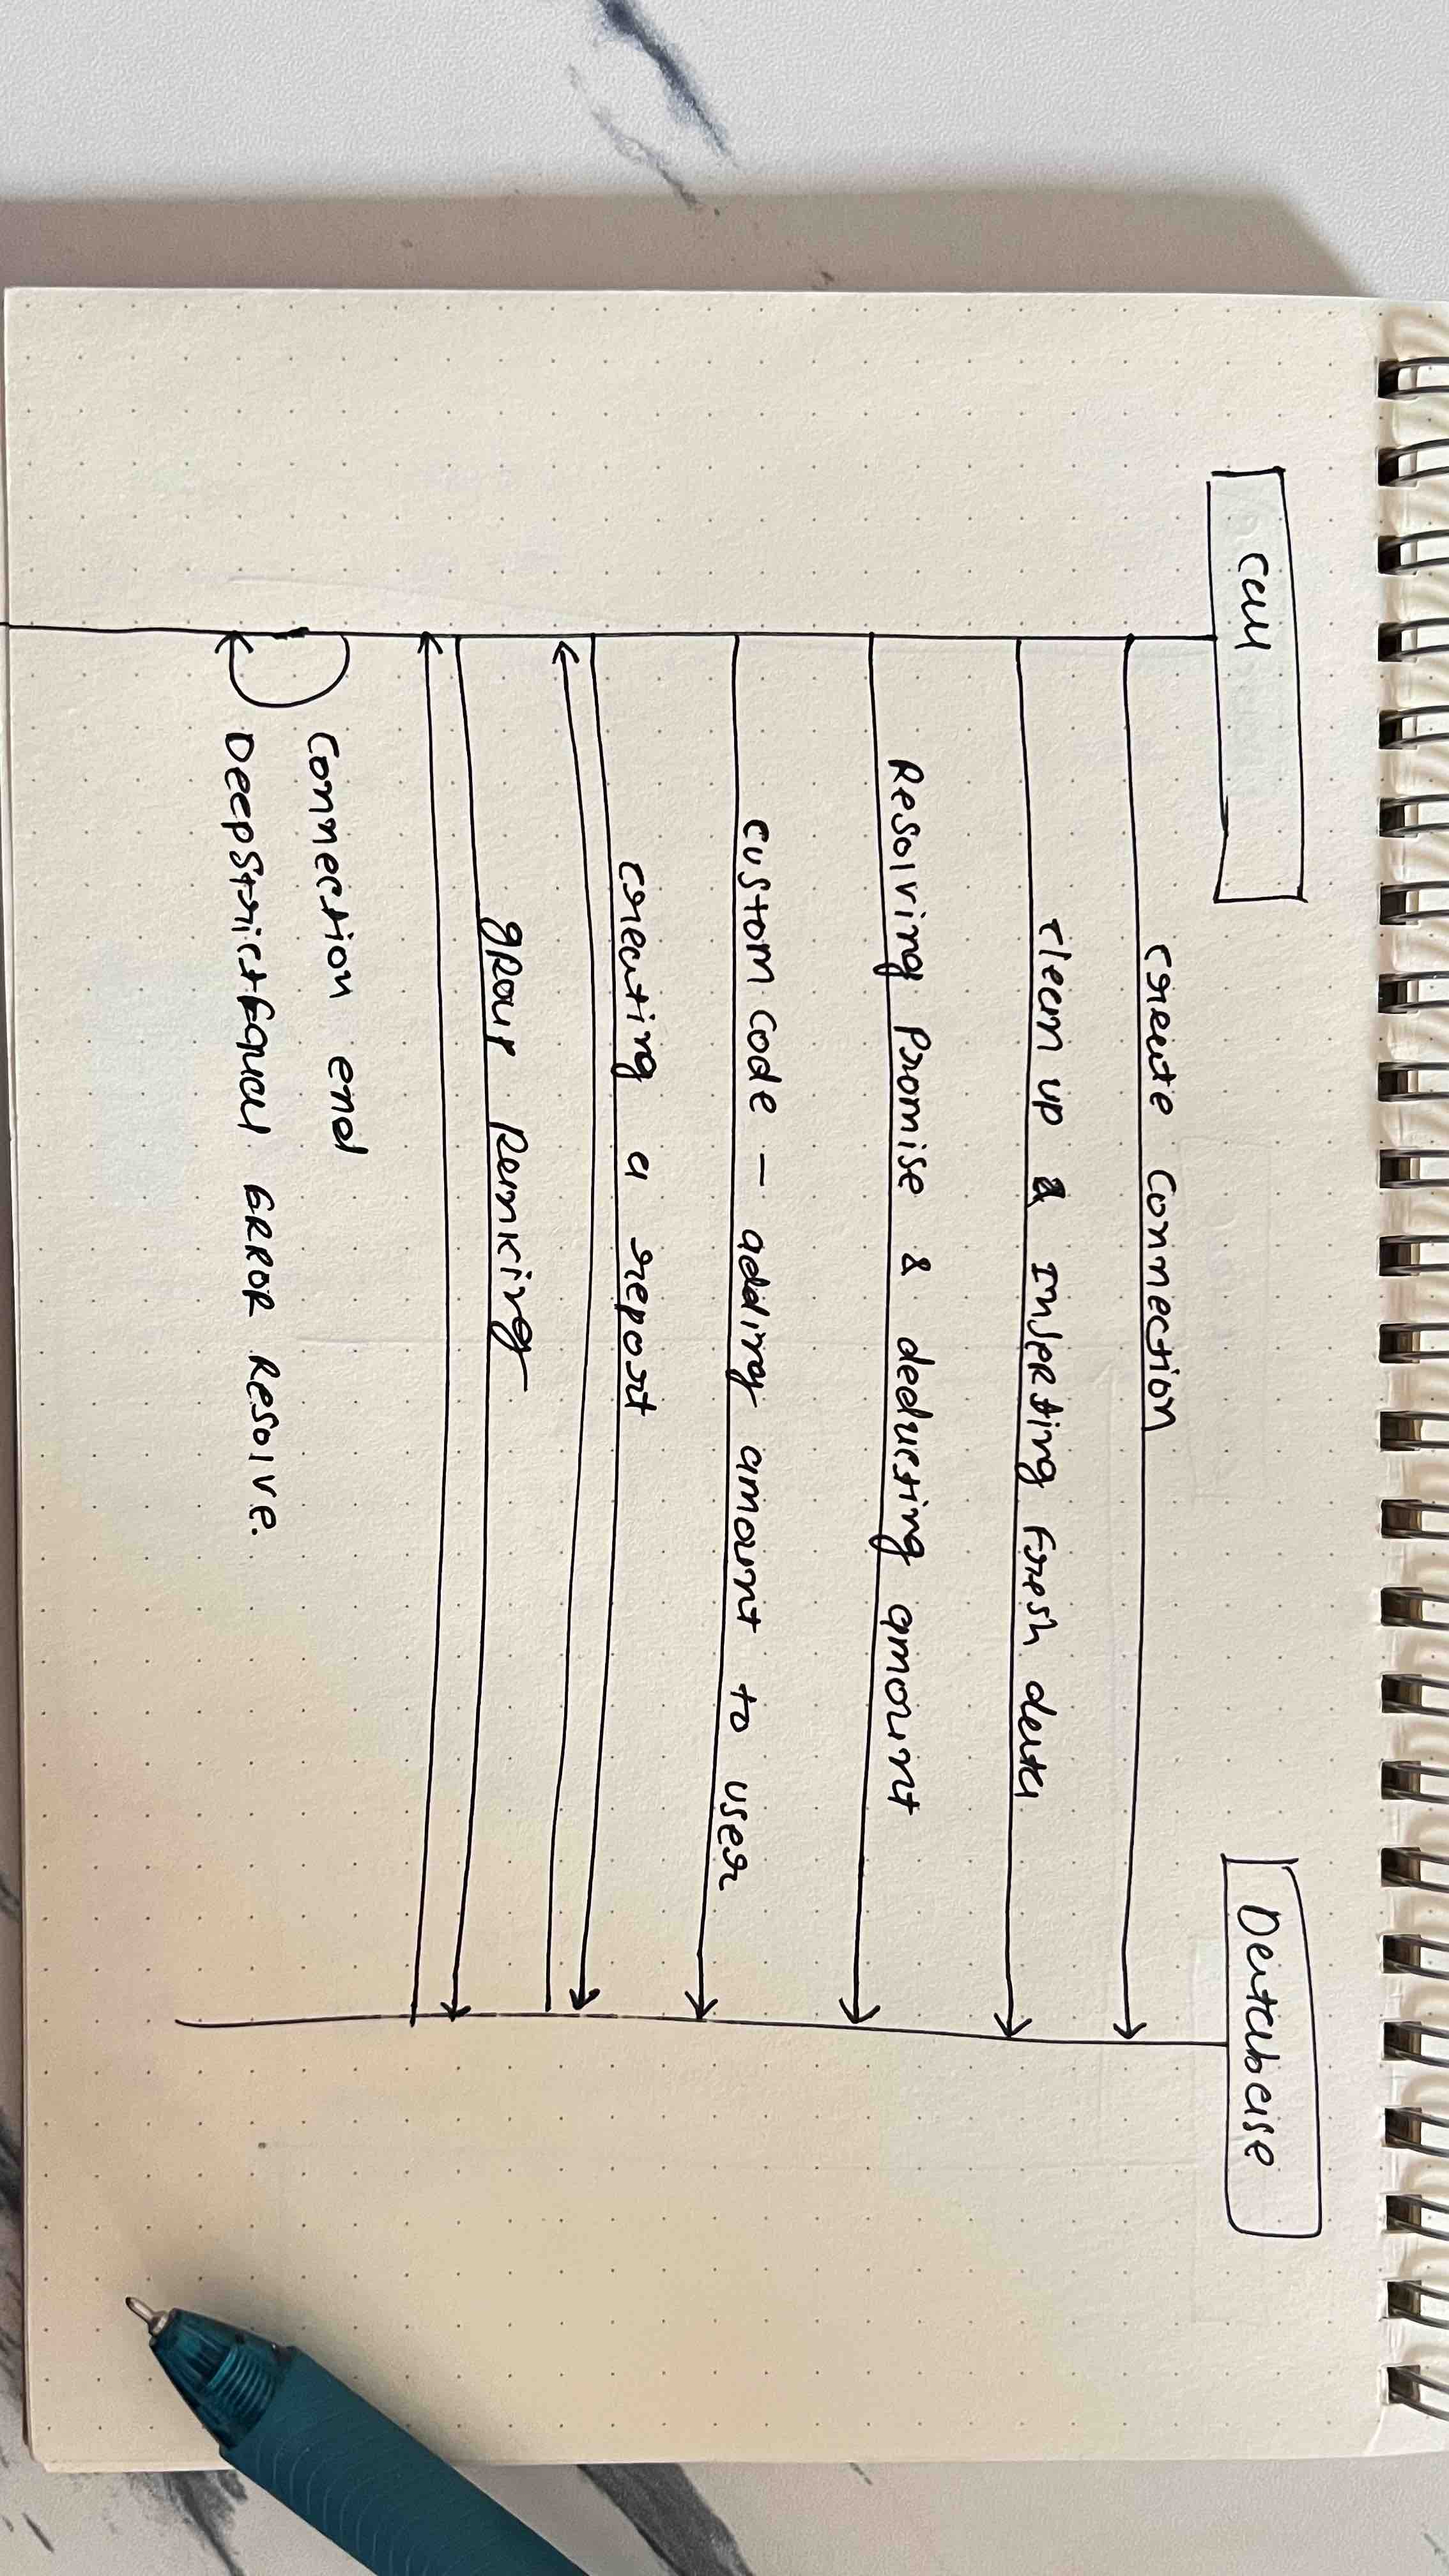 Call
Database
create connection
clean up & Inserting fresh data
Resolving Promise & deducting amount
custom code - adding amount to user
creating a report
group Ranking
Connection end
DeepStrictEqual ERROR Resolve.